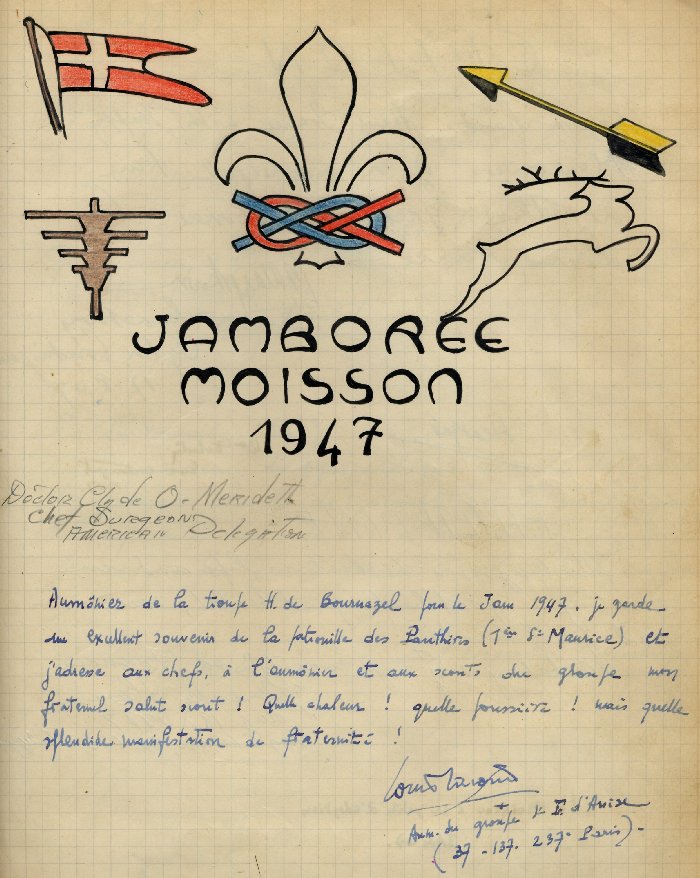 JAMBOREE
MOISSON
1947
Doctor Clyde O-Merideth
Chef Surgeon
American Delegation
Aumônier de la troupe H. de Bournazel pour le Jam 1947. je garde
un excellent souvenir de la patrouille des Panthères (1ère St Maurice) et
j'adresse aux chefs, à l'aumônier et aux scouts du groupe mon
fraternel salut scout ! Quelle chaleur ! quelle poussière ! mais quelle
splendide manifestation de fraternité !
Aum. du groupe d'Assise
(37 - 137. 237e Paris) -